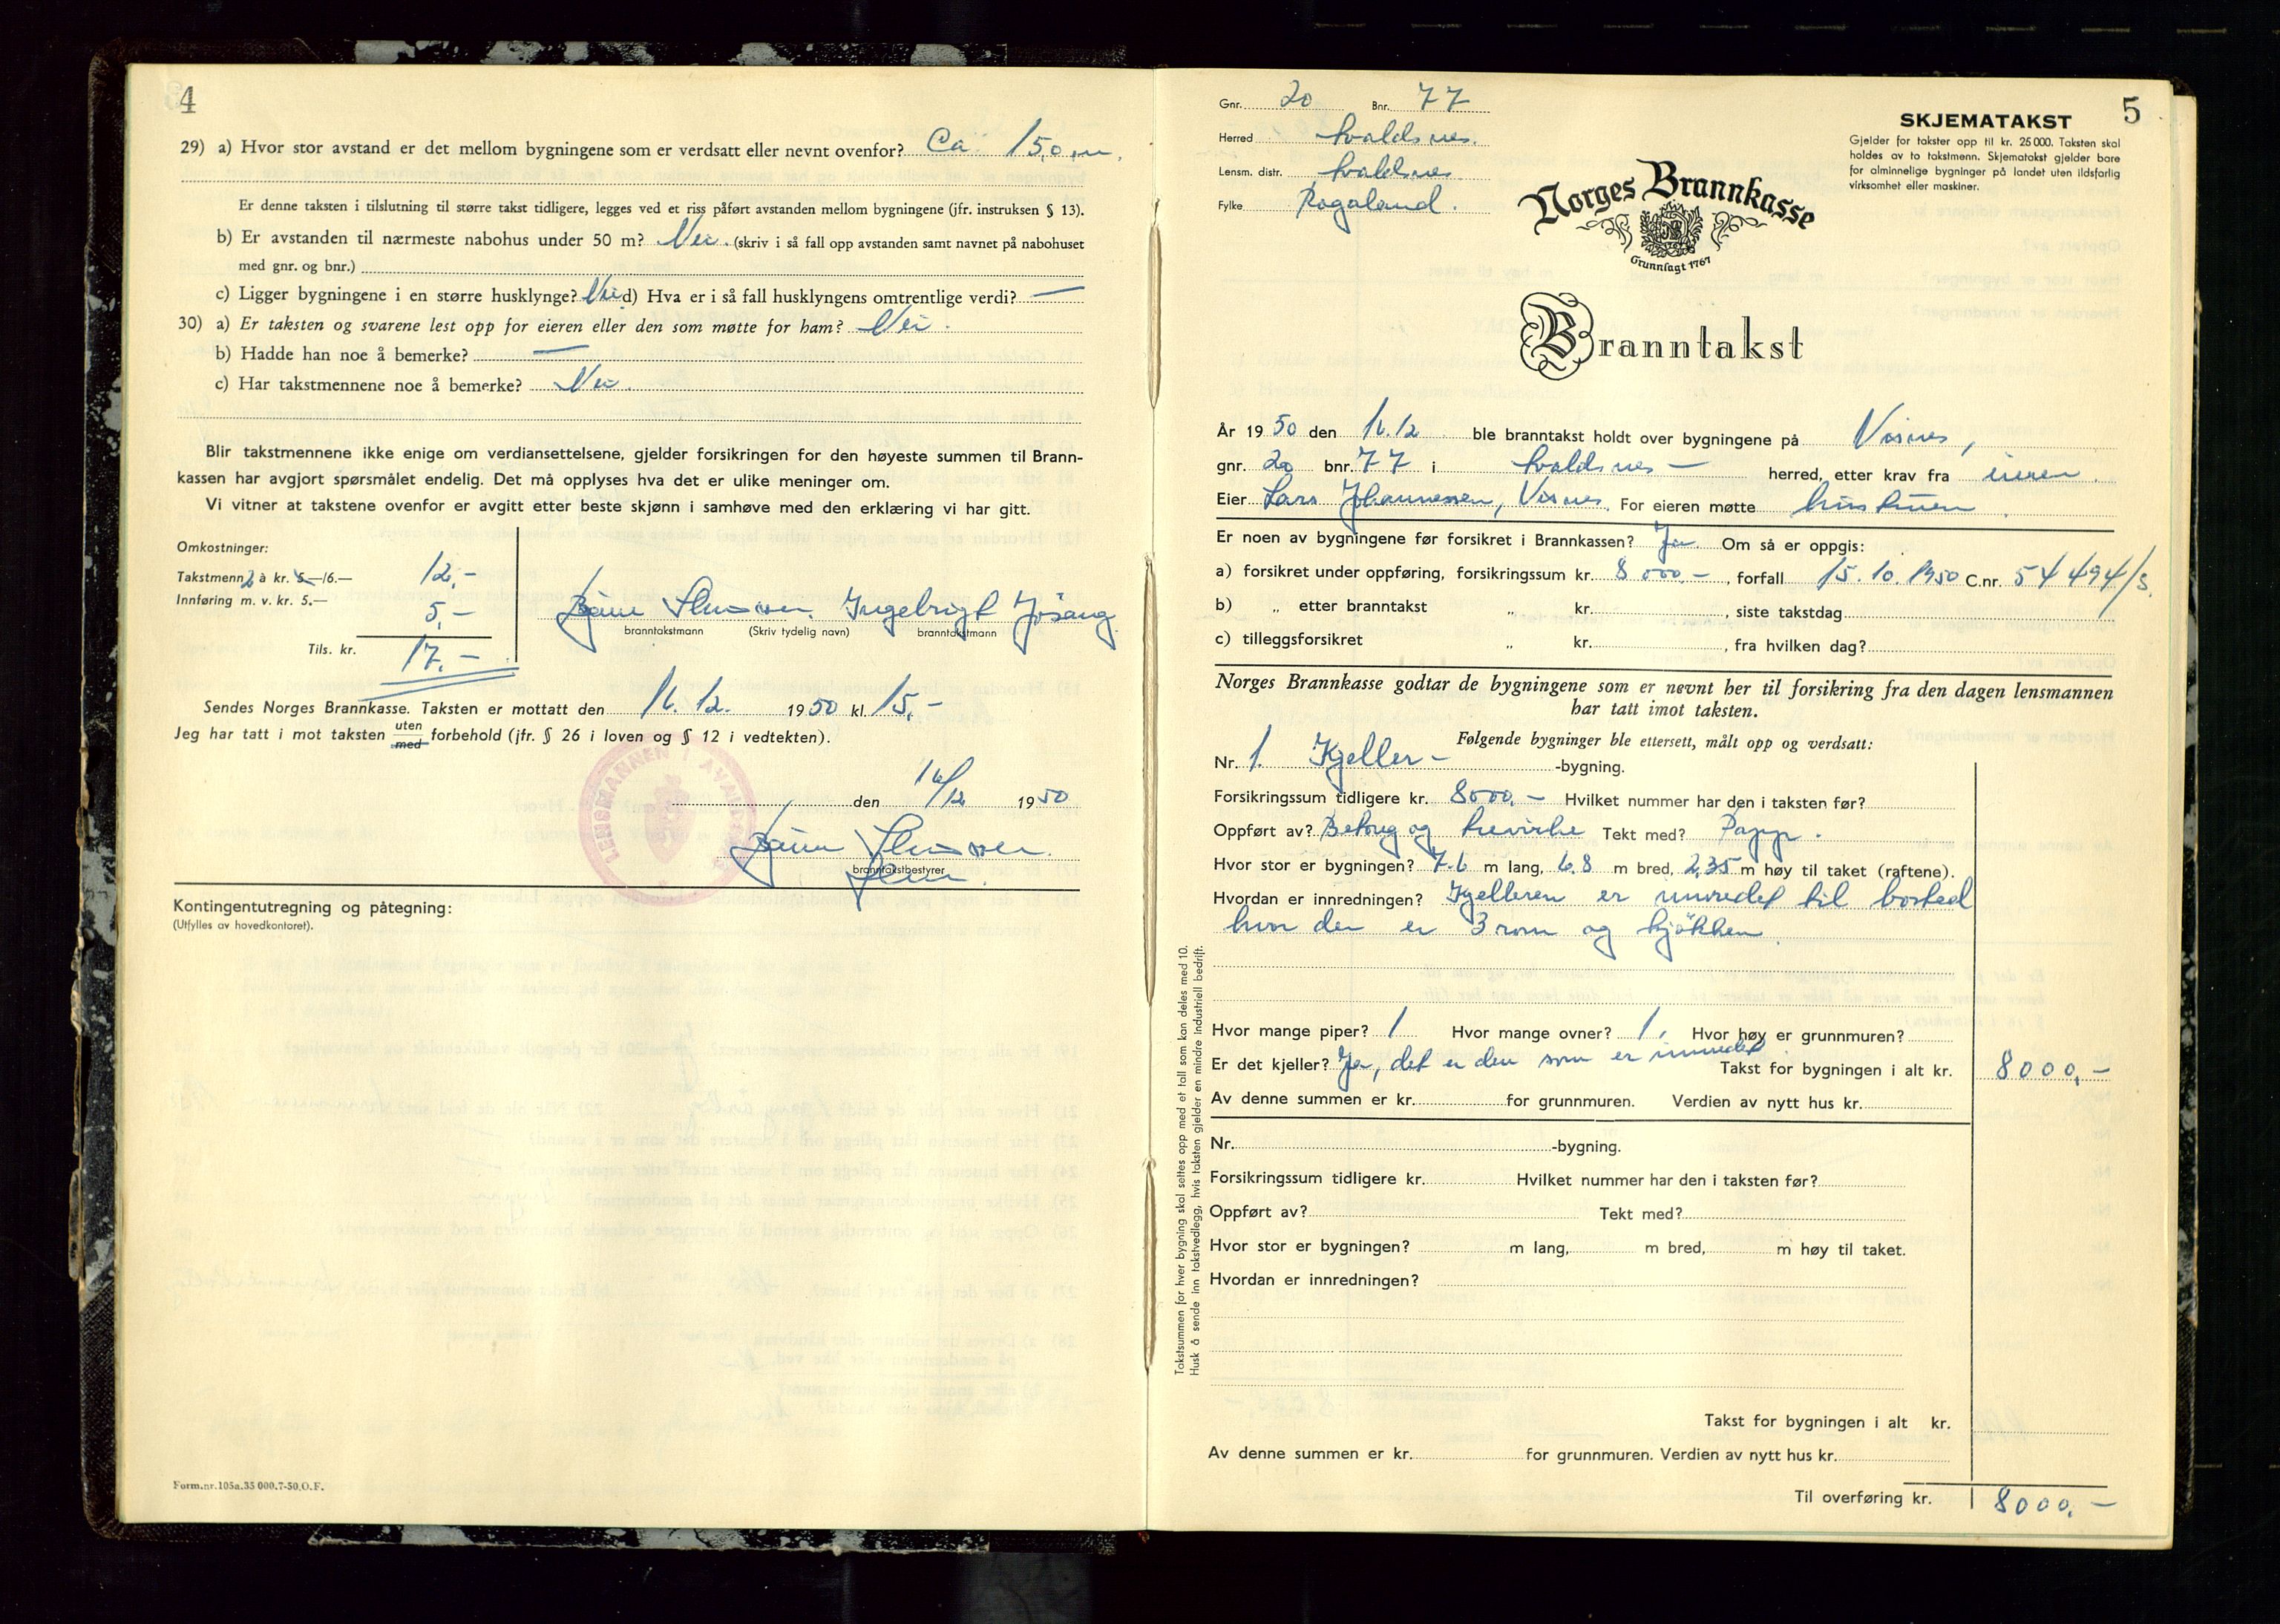 4
29) a) Hvor stor avstand er det mellom bygningene som er verdsatt eller nevnt ovenfor? Ca. 15,0 m.
Er denne taksten i tilslutning til større takst tidligere, legges ved et riss påført avstanden mellom bygningene (jfr. instruksen § 13).
b) Er avstanden til nærmeste nabohus under 50 m? Nei. (skriv i så fall opp avstanden samt navnet på nabohuset
med gnr. og bnr.)
c) Ligger bygningene i en større husklynge? Nei d) Hva er i så fall husklyngens omtrentlige verdi? —
30) a) Er taksten og svarene lest opp for eieren eller den som møtte for ham? Nei.
b) Hadde han noe å bemerke? —
c) Har takstmennene noe å bemerke? Nei.
Blir takstmennene ikke enige om verdiansettelsene, gjelder forsikringen for den høyeste summen til Brann-
kassen har avgjort spørsmålet endelig. Det må opplyses hva det er ulike meninger om.
Vi vitner at takstene ovenfor er avgitt etter beste skjønn i samhøve med den erklæring vi har gitt.
Omkostninger:
Takstmenn 2 à kr. 5.—/6.— 12,-
Innføring m. v. kr. 5.— 5,-
Tils. kr. 17.-
Ingebrigt Jösang
branntakstmann (Skriv tydelig navn) branntakstmann
Sendes Norges Brannkasse. Taksten er mottatt den 16.12. 1950 kl. 15,-
Jeg har tatt i mot taksten uten med forbehold (jfr. § 26 i loven og § 12 i vedtekten).
LENSMANNEN I AVALDSNES
den 16/12 1950
branntakstbestyrer
Kontingentutregning og påtegning:
(Utfylles av hovedkontoret).
Form.nr.105a.35 000.7-50.O.F.
Gnr. 20 Bnr. 77
Herred Avaldsnes.
Lensm. distr. Avaldsnes
Fylke Rogaland.
SKJEMATAKST
5
Gjelder for takster opp til kr. 25 000. Taksten skal
holdes av to takstmenn. Skjematakst gjelder bare
for alminnelige bygninger på landet uten ildsfarlig
virksomhet eller maskiner.
Norges Brannkasse
Grunnlagt 1767
Branntakst
År 1950 den 16.12 ble branntakst holdt over bygningene på Visnes,
gnr. 20 bnr. 77 i Avaldsnes — herred, etter krav fra eieren.
Eier Lars Johannessen, Visnes. For eieren møtte hustruen.
Er noen av bygningene før forsikret i Brannkassen? Ja. Om så er oppgis:
a) forsikret under oppføring, forsikringssum kr. 8000,-, forfall 15.10.1950 C.nr. 54494/3.
b) „ etter branntakst „ kr. , siste takstdag
c) tilleggsforsikret „ kr. , fra hvilken dag?
Norges Brannkasse godtar de bygningene som er nevnt her til forsikring fra den dagen lensmannen
har tatt imot taksten.
Følgende bygninger ble ettersett, målt opp og verdsatt:
Nr. 1. Kjeller- -bygning.
Forsikringssum tidligere kr. 8000,- Hvilket nummer har den i taksten før?
Oppført av? Betong og trevirke Tekt med? Papp.
Hvor stor er bygningen? 7.6 m lang, 6.8 m bred, 2,35 m høy til taket (raftene).
Hvordan er innredningen? Kjelleren er innredet til bosted
hvor der er 3 rom og kjökken
Hvor mange piper? 1 Hvor mange ovner? 1. Hvor høy er grunnmuren?
Er det kjeller? Ja, det er den som er innredet Takst for bygningen i alt kr. 8000,-
Av denne summen er kr. for grunnmuren. Verdien av nytt hus kr.
Nr. -bygning.
Forsikringssum tidligere kr. Hvilket nummer har den i taksten før?
Oppført av? Tekt med?
Hvor stor er bygningen? m lang, m bred, m høy til taket.
Hvordan er innredningen?
Takst for bygningen i alt kr.
Av denne summen er kr. for grunnmuren. Verdien av nytt hus kr.
Til overføring kr. 8000,-
Takstsummen for hver bygning skal settes opp med et tall som kan deles med 10.
Husk å sende inn takstvedlegg, hvis taksten gjelder en mindre industriell bedrift.